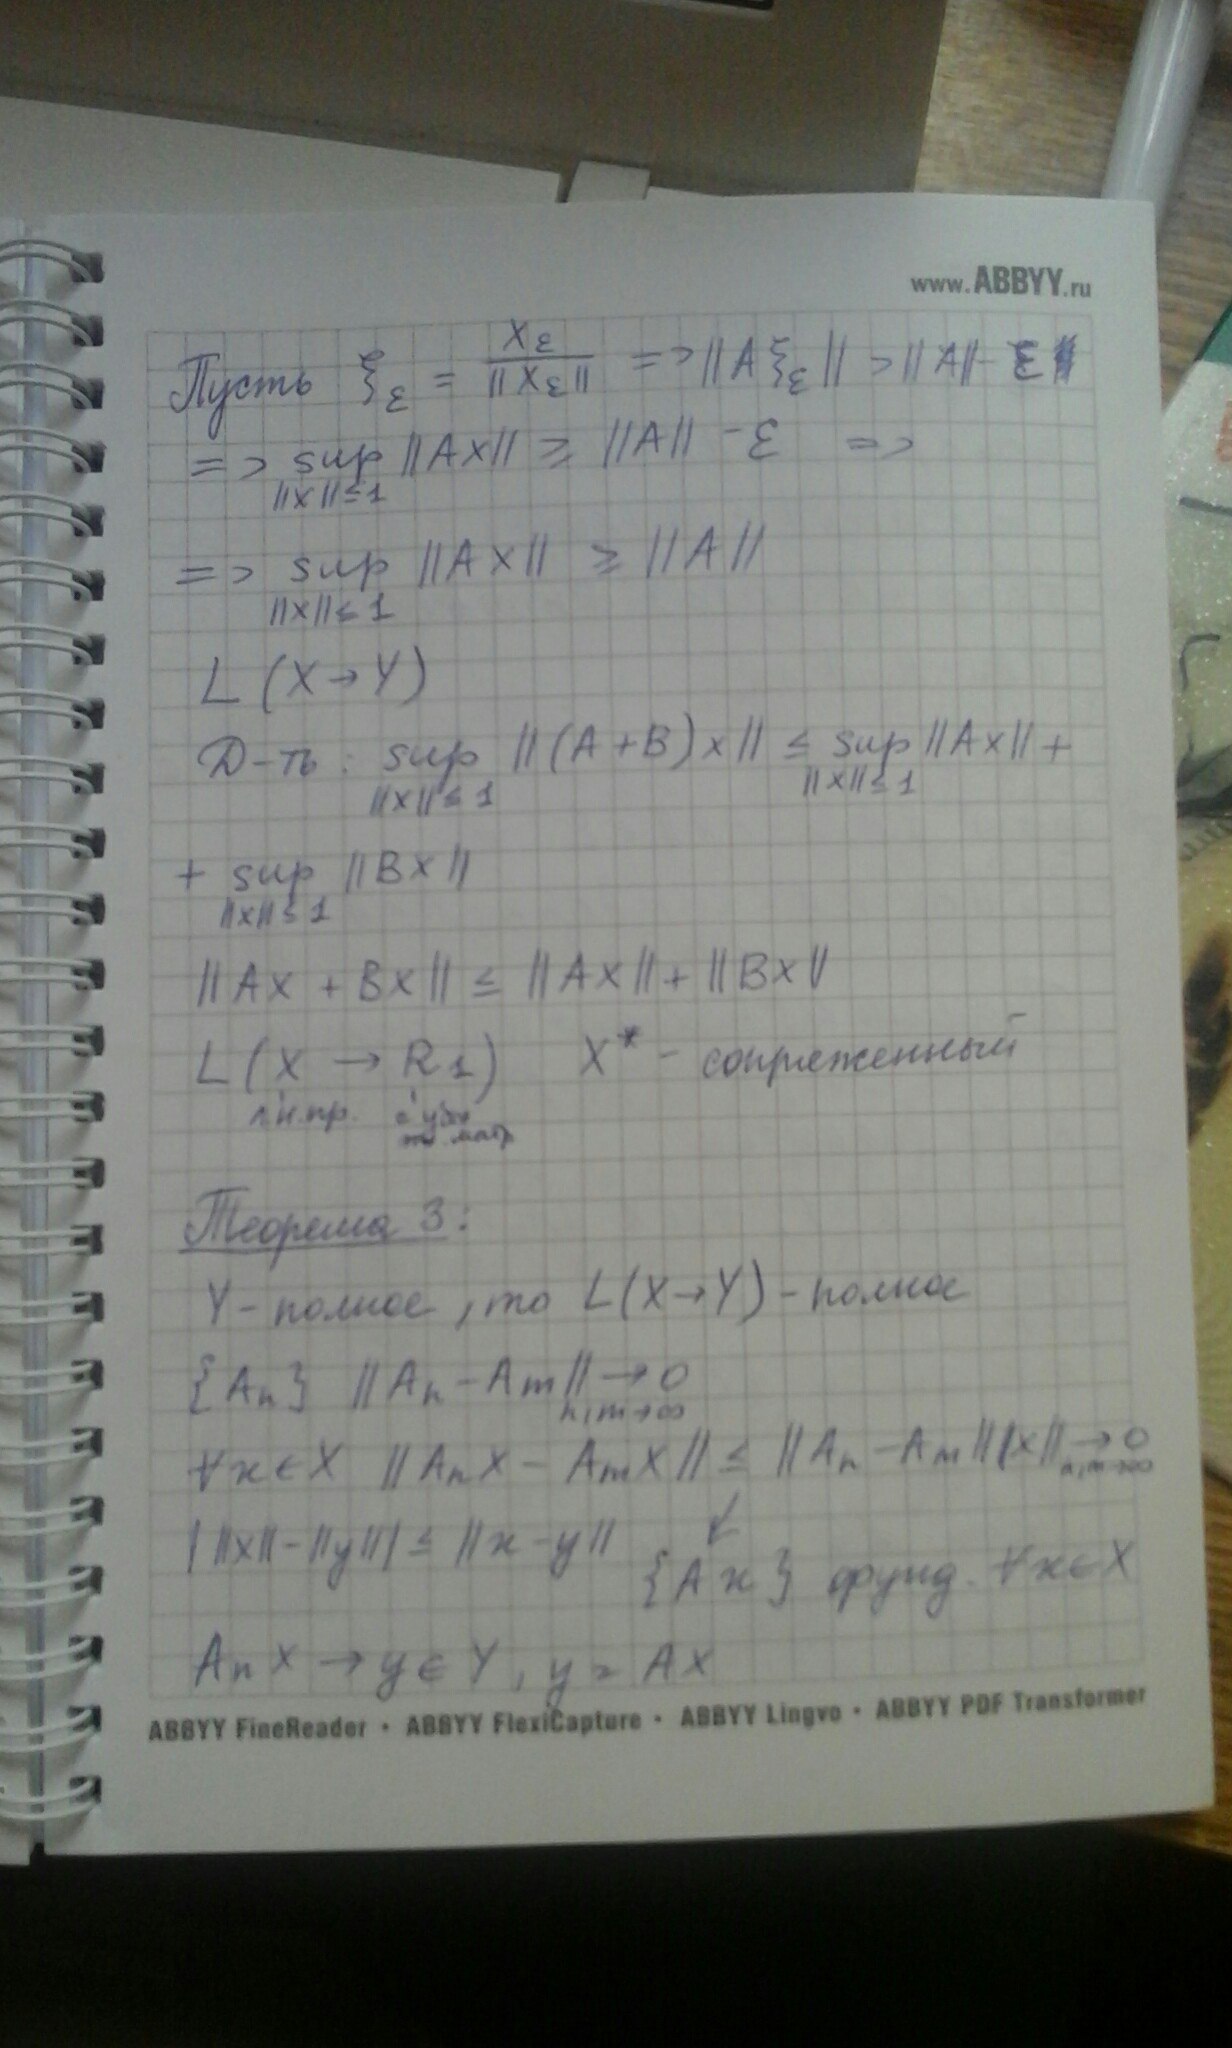 www.ABBYY.ru
Пусть ξ_ε = x_ε / ||x_ε|| => ||Aξ_ε|| > ||A|| - ε
=> sup ||Ax|| ≥ ||A|| - ε =>
||x||≤1
=> sup ||Ax|| ≥ ||A||
||x||≤1
L (X→Y)
Д-ть: sup ||(A+B)x|| ≤ sup ||Ax|| +
||x||≤1 ||x||≤1
+ sup ||Bx||
||x||≤1
||Ax + Bx|| ≤ ||Ax|| + ||Bx||
L(X → R1) X* - сопряженный
лин.пр.
Теорема 3:
Y-полное, то L(X→Y)-полное
{An} ||An - Am|| → 0
n,m→∞
∀x∈X ||Anx - Amx|| ≤ ||An - Am|| ||x|| → 0
n,m→∞
| ||x|| - ||y|| | ≤ ||x-y||
↙
{Ax} фунд. ∀x∈X
Anx → y∈Y, y = Ax
ABBYY FineReader • ABBYY FlexiCapture • ABBYY Lingvo • ABBYY PDF Transformer